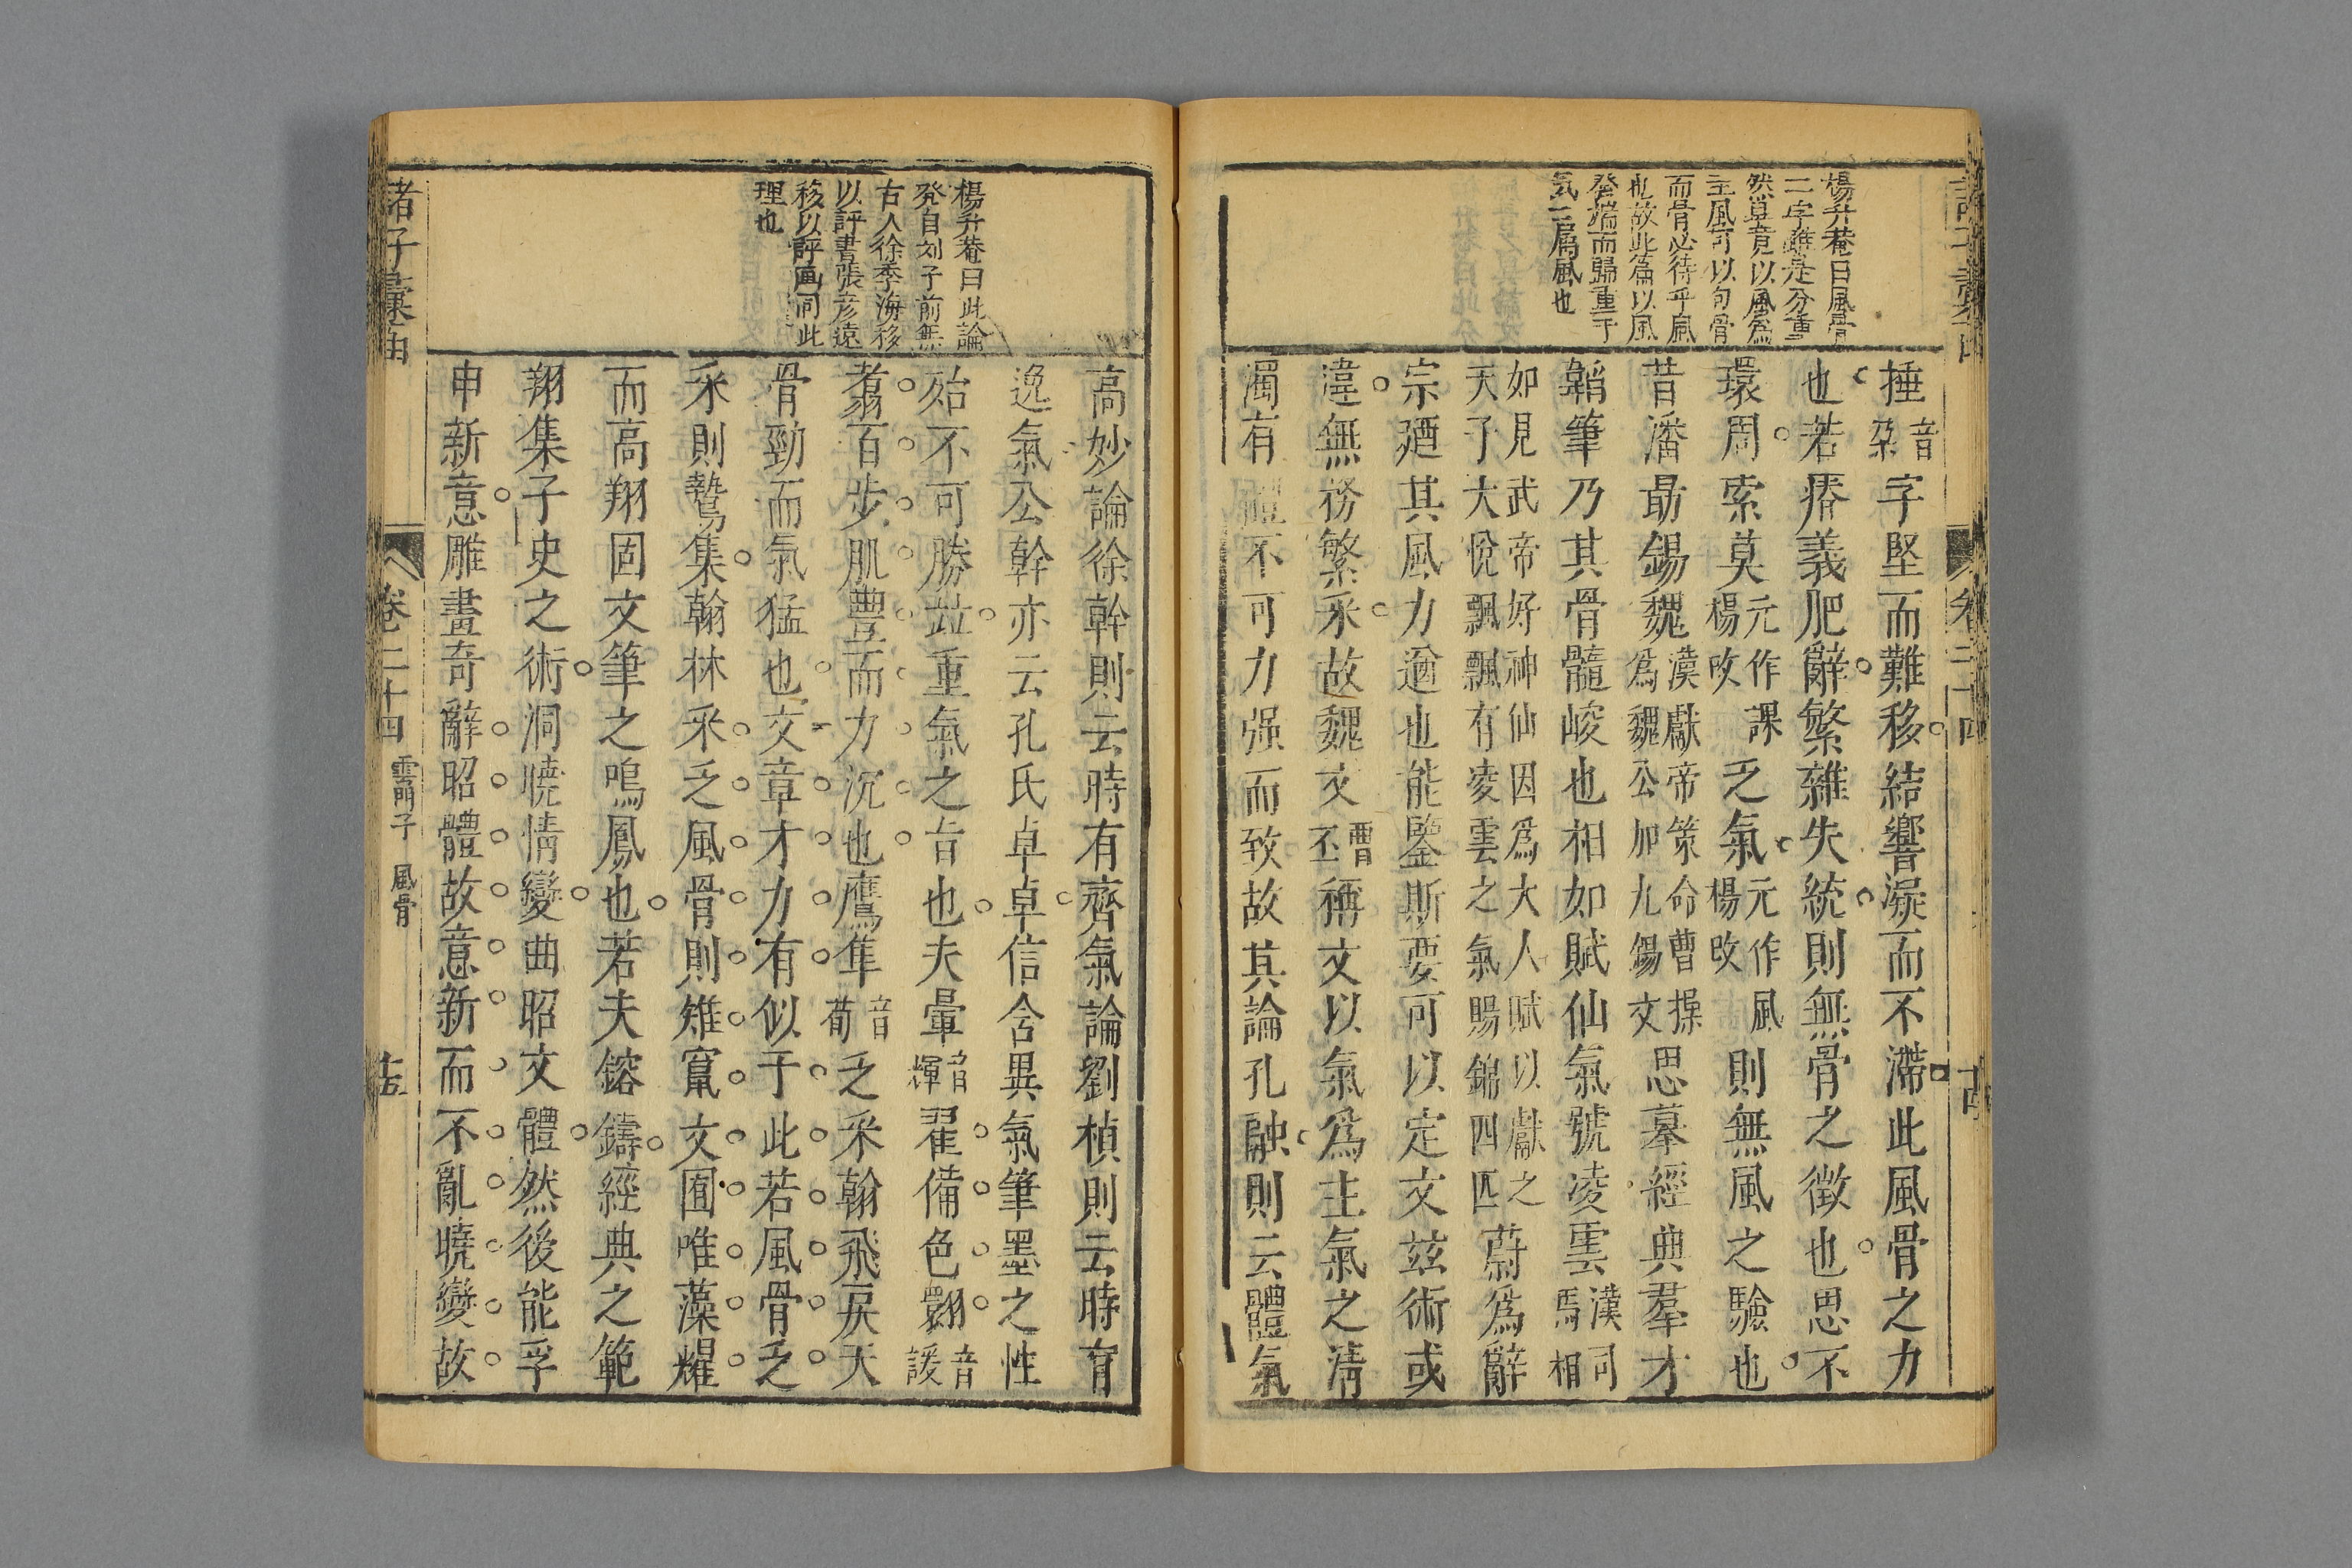 楊升菴曰風骨
二字雖是分重
然畢竟以風爲
主風可以包骨
而骨必待乎風
也故此篇以風
發端而歸重于
気二屬風也
捶音朶字堅而難移結響凝而不滯此風骨之力
也若瘠義肥辭繁雜失統則無骨之徵也思不
環周索莫元作課楊改乏氣元作風楊改則無風之驗也
昔潘勗錫魏漢獻帝策命曹操爲魏公加九錫文思摹經典羣才
韜筆乃其骨髓峻也相如賦仙氣號凌雲漢司馬相
如見武帝好神仙因爲大人賦以獻之天子大悅飄飄有凌雲之氣賜錦四匹蔚爲辭
宗廼其風力遒也能鑒斯要可以定文茲術或
違無務繁釆故魏文曹丕稱文以氣爲主氣之淸
濁有體不可力强而致故其論孔融則云體氣
卷二十四
楊升菴曰此論
発自刘子前無
古人徐季海移
以評書張彥遠
移以評画同此
理也
高妙論徐幹則云時有齊氣論劉楨則云時有
逸氣公幹亦云孔氏卓卓信含異氣筆墨之性
殆不可勝竝重氣之旨也夫暈音輝翟備色翾音諼
翥百步肌豐而力沉也鷹隼音荀乏釆翰飛戾天
骨勁而氣猛也文章才力有似于此若風骨乏
釆則鷙集翰林釆乏風骨則雉竄文囿唯藻耀
而高翔固文筆之鳴鳳也若夫鎔鑄經典之範
翔集子史之術洞曉情變曲昭文體然後能孚
甲新意雕畫奇辭昭體故意新而不亂曉變故
諸子彙函
卷二十四
雲門子
風骨
十五